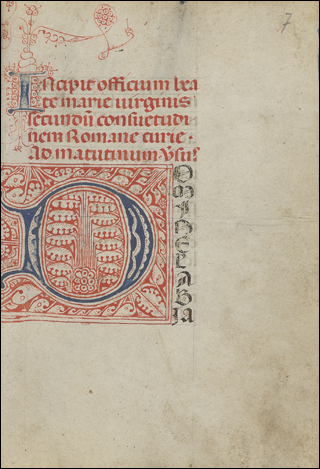 7
Incipit officium bea
te marie uirginis
secundū consuetudi
nem Romane curie.
Ad matutinum. ℣sus
D
O
M
I
N
E
L
A
B
IA